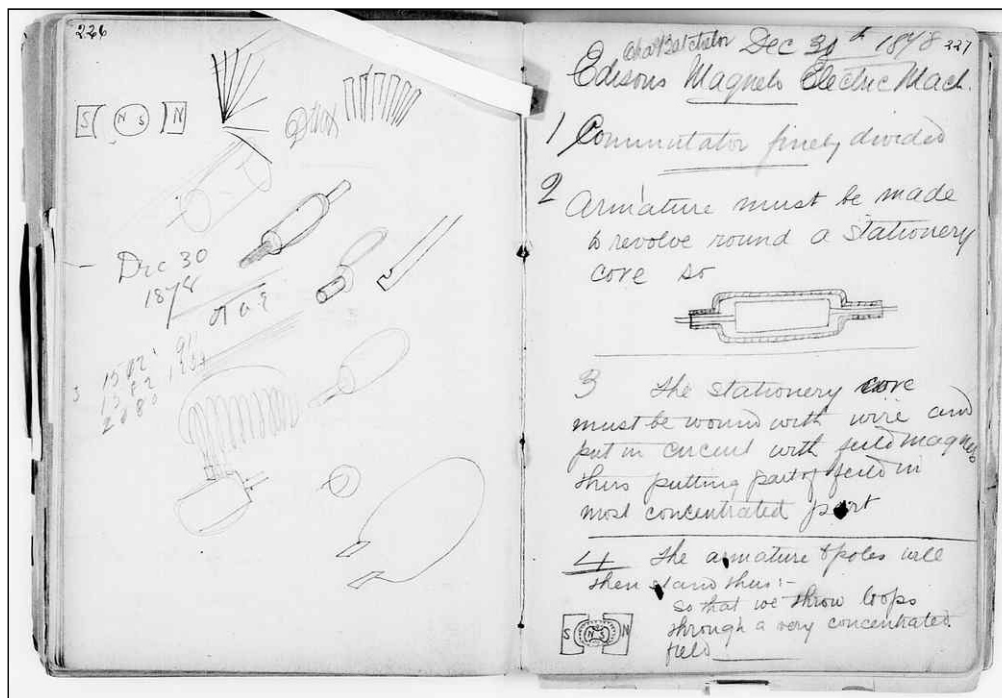 226
S N S N
Dec 30
1878
T A E
Chas Batchelor Dec 30th 1878 227
Edisons Magneto Electric Mach.
1 Commutator finely divided
2 Armature must be made
to revolve round a stationery
core so
3 The stationery core
must be wound with wire and
put in circuit with feild magnets
thus putting part of feild in
most concentrated part
4 The armature & poles will
then stand thus:-
so that we throw loops
through a very concentrated
field
S N S N